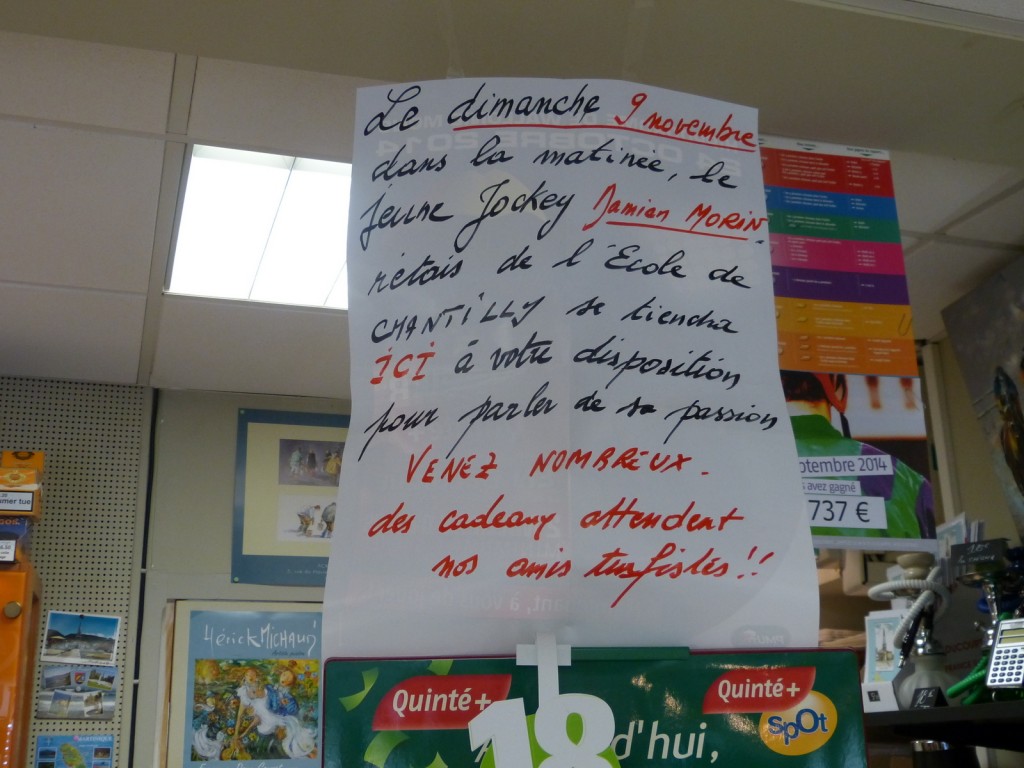 Le dimanche 9 novembre
dans la matinée, le
jeune Jockey Damien MORIN
rétais de l'École de
CHANTILLY se tiendra
ICI à votre disposition
pour parler de sa passion
VENEZ NOMBREUX.
des cadeaux attendent
nos amis turfistes !!
ptembre 2014
s avez gagné
737 €
Quinté+
Quinté+
SpOt
18
d'hui,
4érick MICHAUD